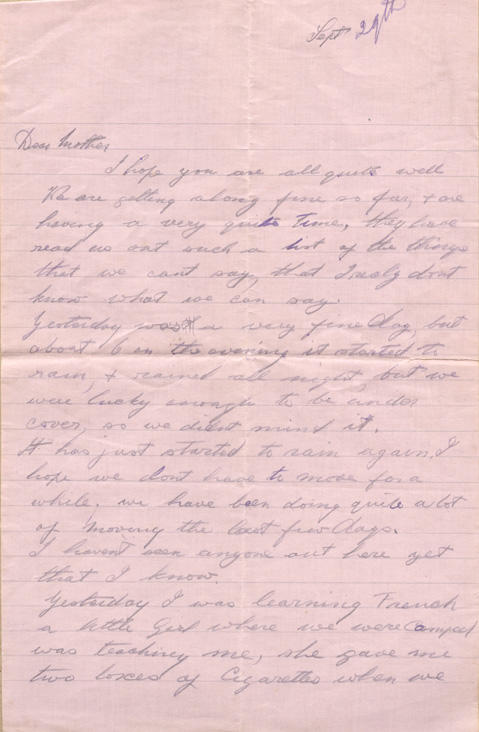 Sept 29th
Dear Mother
I hope you are all quite well
We are getting along fine so far, + are
having a very quite time, they have
read us out such a lot of the things
that we cant say, that I realy dont
know what we can say.
Yesterday was a very fine day, but
about 6 in the evening it started to
rain, + rained all night, but we
were lucky enough to be under
cover, so we didnt mind it.
It has just started to rain again, I
hope we dont have to move for a
while. we have been doing quite a lot
of moving the last few days.
I havent seen anyone out here yet
that I know.
Yesterday I was learning French
a little Girl where we were Camped
was teaching me, she gave me
two boxes of Cigarettes when we